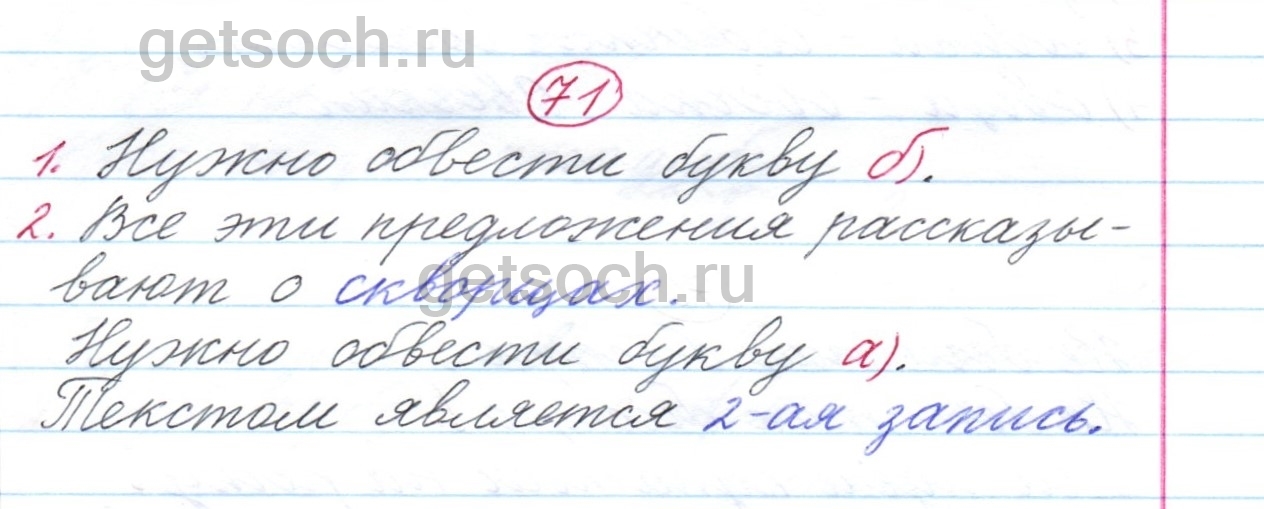 getsoch.ru
71
1. Нужно обвести букву б).
2. Все эти предложения рассказы-
вают о скворцах.
getsoch.ru
Нужно обвести букву а).
Текстом является 2-ая запись.